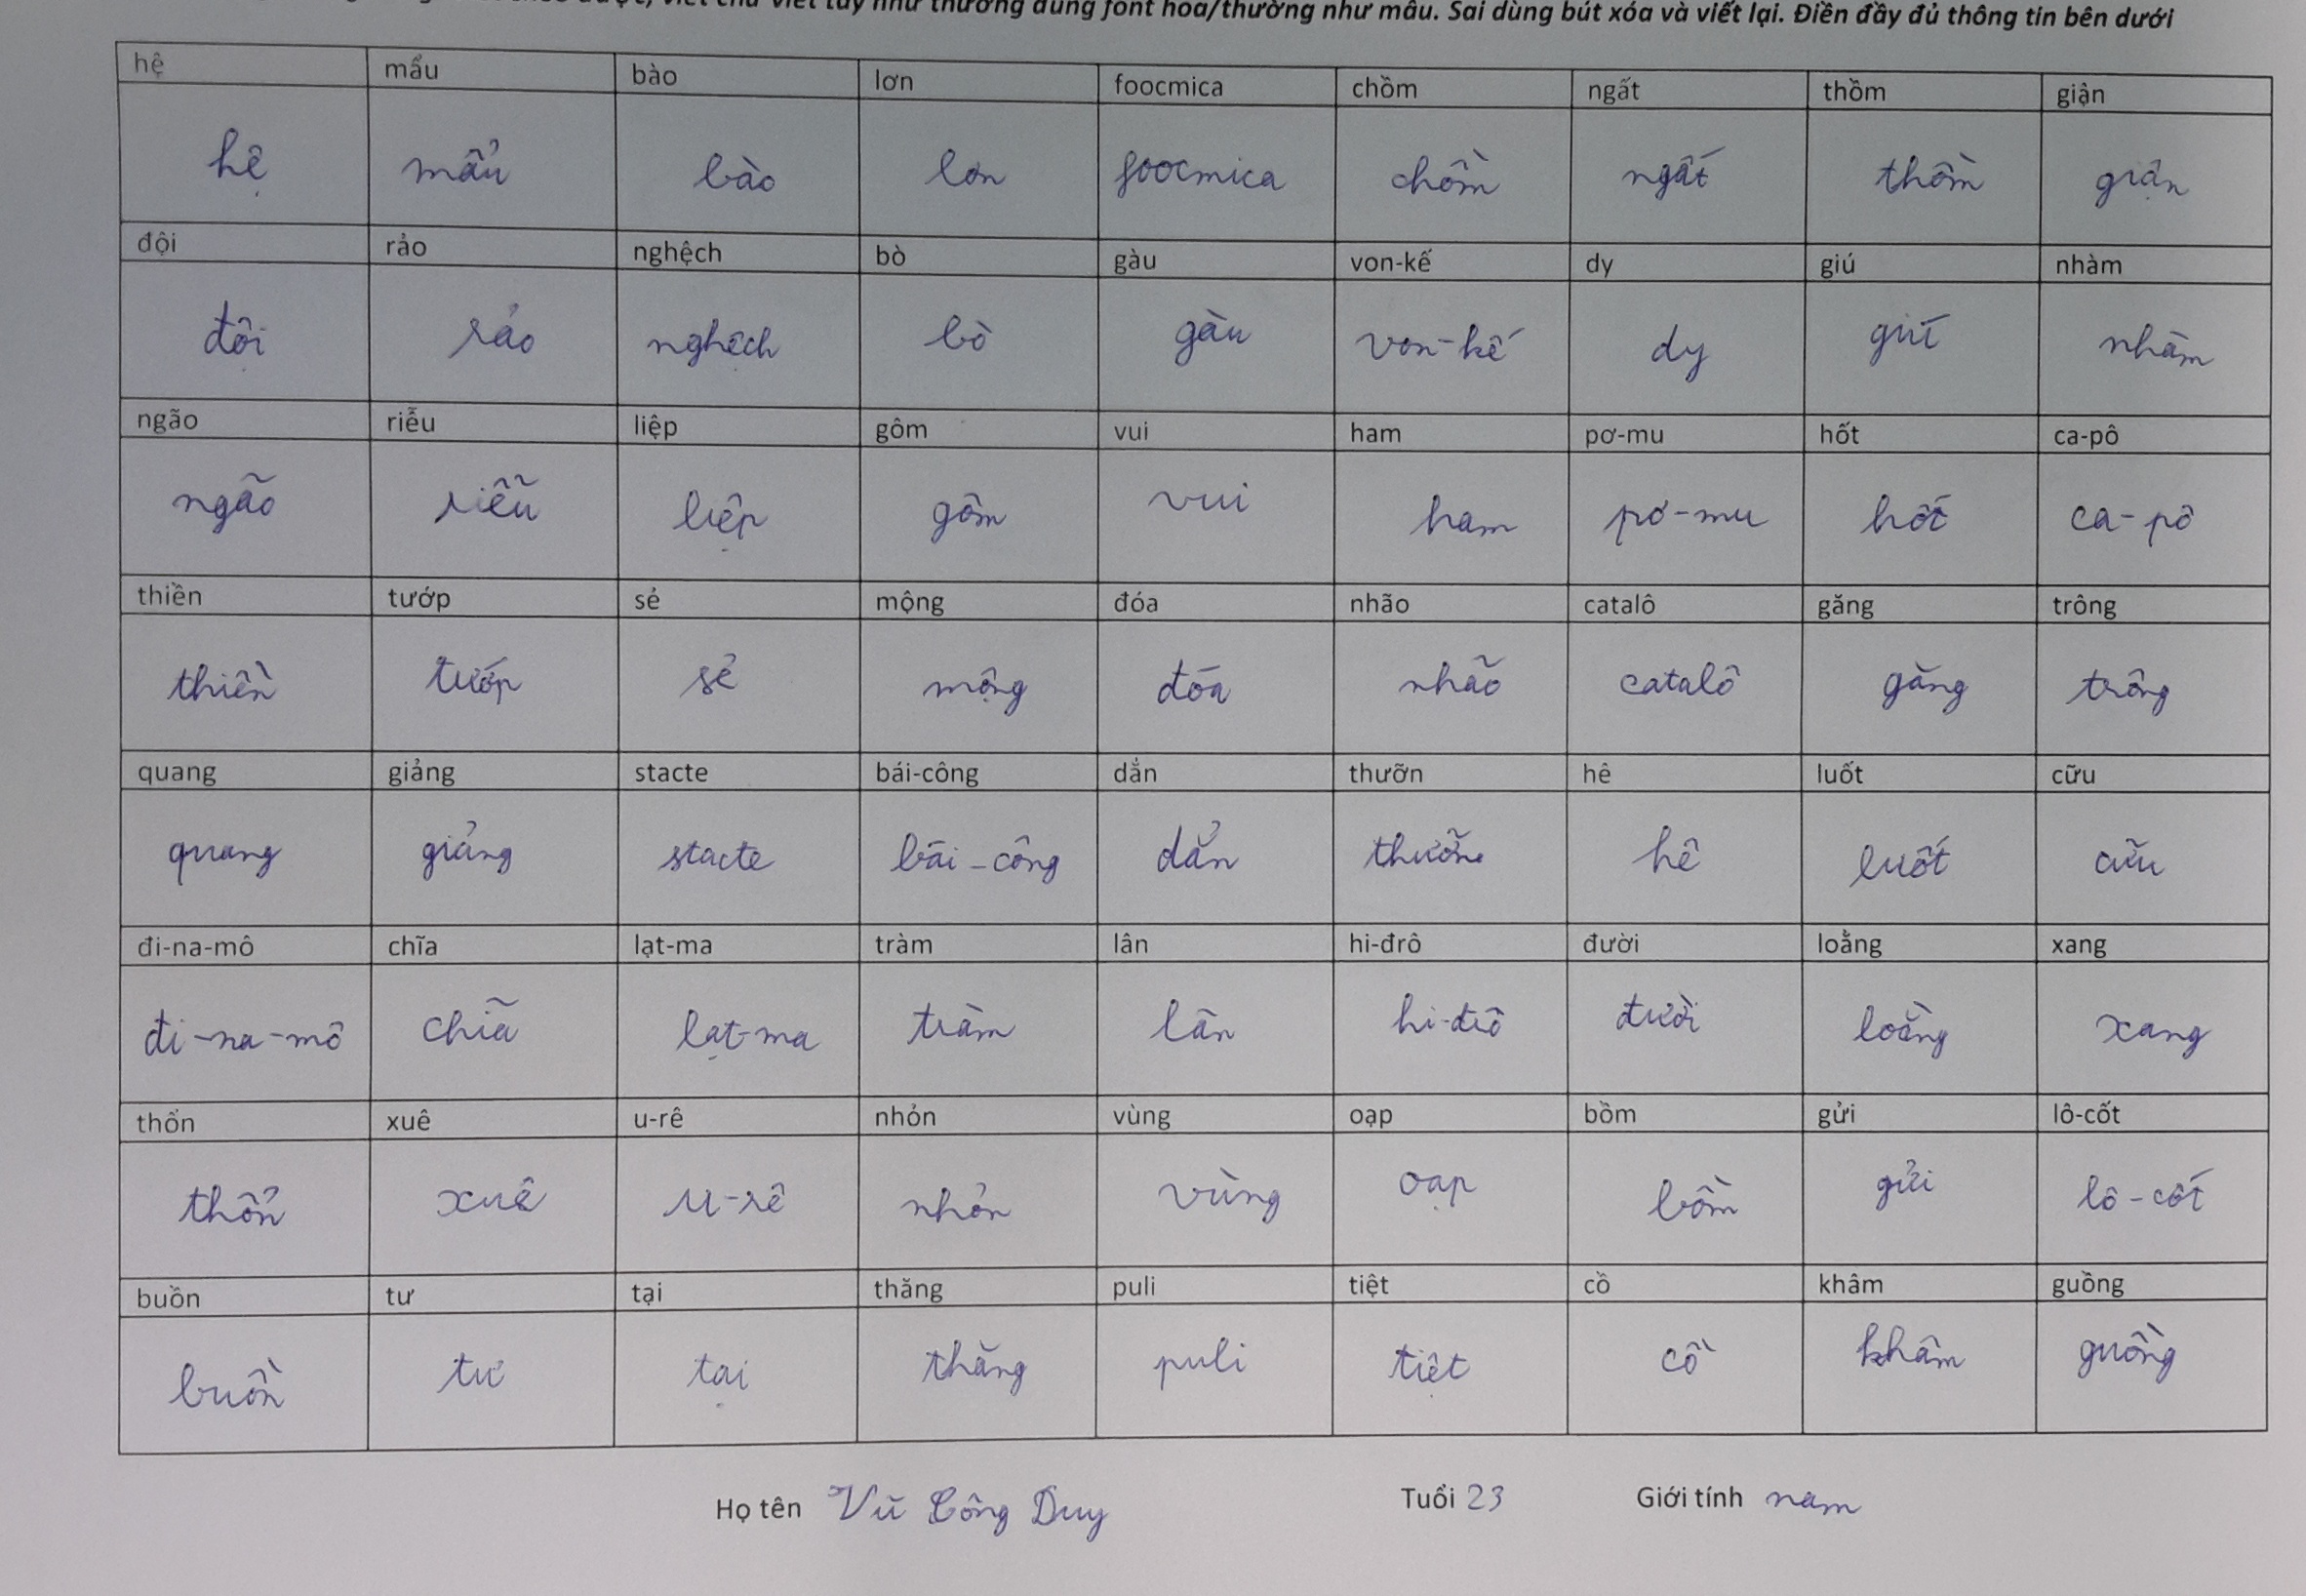 viết chữ viết tay như thường dùng font hoa/thường như mẫu. Sai dùng bút xóa và viết lại. Điền đầy đủ thông tin bên dưới
hệ mẩu bào lơn foocmica chồm ngất thồm giận
hệ mẩu bào lơn foocmica chồm ngất thồm giận
đội rảo nghệch bò gàu von-kế dy giú nhàm
đội rảo nghệch bò gàu von-kế dy giú nhàm
ngão riễu liệp gôm vui ham pơ-mu hốt ca-pô
ngão riễu liệp gôm vui ham pơ-mu hốt ca-pô
thiền tướp sẻ mộng đóa nhão catalô găng trông
thiền tướp sẻ mộng đóa nhão catalô găng trông
quang giảng stacte bái-công dẳn thưỡn hê luốt cữu
quang giảng stacte bái-công dẳn thưỡn hê luốt cữu
đi-na-mô chĩa lạt-ma tràm lân hi-đrô đười loằng xang
đi-na-mô chĩa lạt-ma tràm lân hi-đrô đười loằng xang
thổn xuê u-rê nhỏn vùng oạp bồm gửi lô-cốt
thổn xuê u-rê nhỏn vùng oạp bồm gửi lô-cốt
buồn tư tại thăng puli tiệt cồ khâm guồng
buồn tư tại thăng puli tiệt cồ khâm guồng
Họ tên Vũ Công Duy Tuổi 23 Giới tính nam